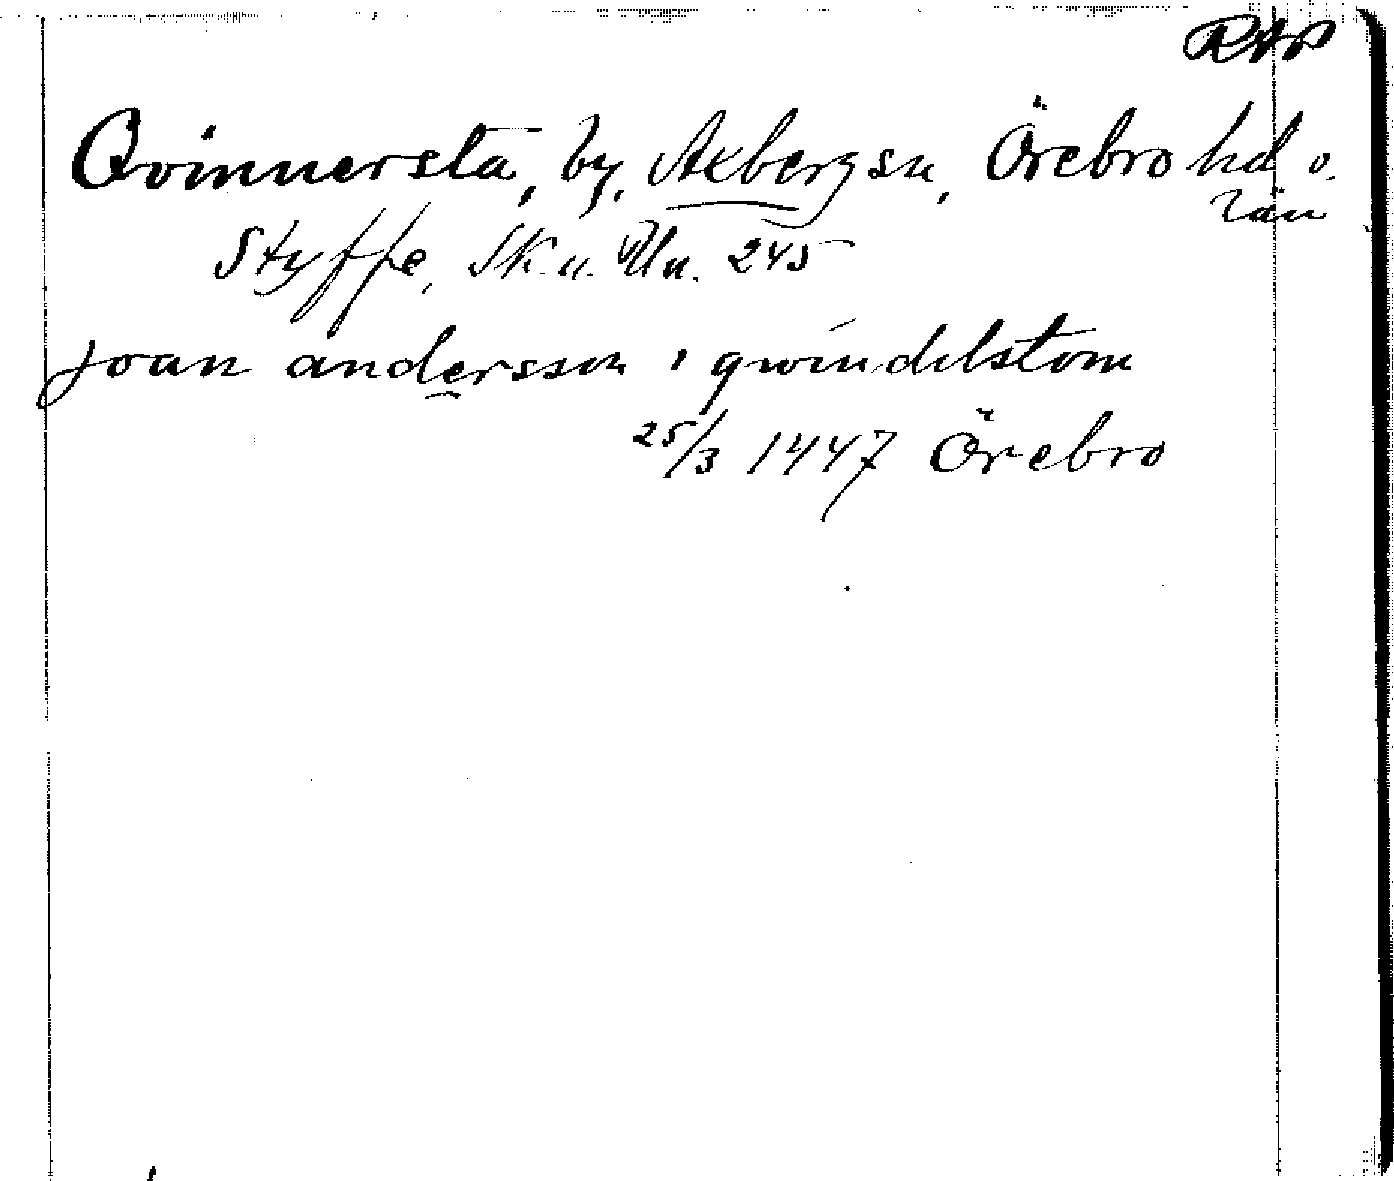 RAP
Qvinnersta, by, Axbergs sn, Örebro hd o.
län
Styffe, Sk. u. Un. 245
joan andersson i qwindelstom
25/3 1447 Örebro